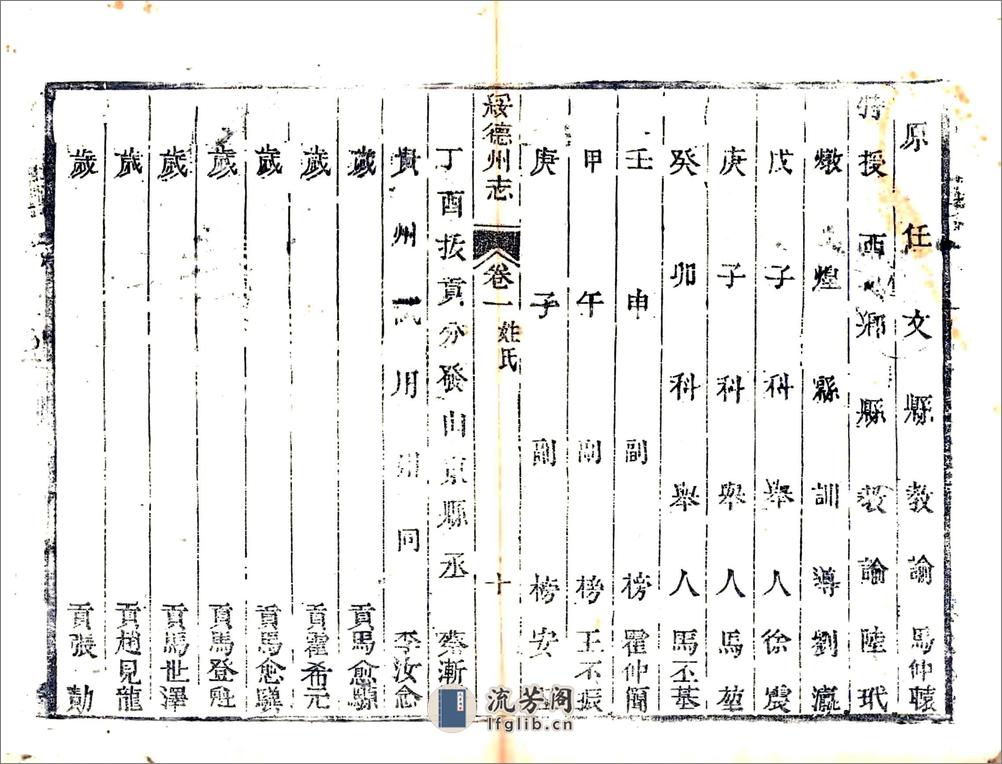 原任文縣教諭馬仲
特授西鄉縣教諭陸玳
燉煌縣訓導劉瀛
戊子科舉人徐震
庚子科舉人馬堃
癸卯科舉人馬丕基
壬申副榜霍仲簡
甲午副榜王丕振
庚子副榜安
綏德州志 卷一 姓氏 十
丁酉拔貢分發山東縣丞蔡漸
貴州試用州同李汝念
歲貢馬愈驥
歲貢霍希元
歲貢馬愈
歲貢馬登魁
歲貢馬世澤
歲貢趙見龍
歲貢張勛
流芳阁
lfglib.cn